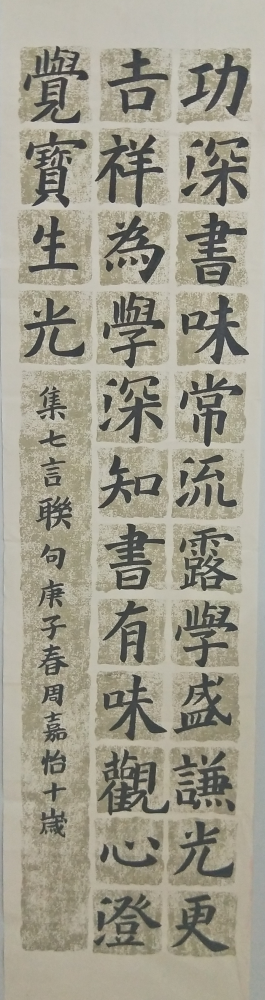 功深書味常流露學盛謙光更
吉祥為學深知書有味觀心澄
覺寶生光
集七言聯句庚子春周嘉怡十歲